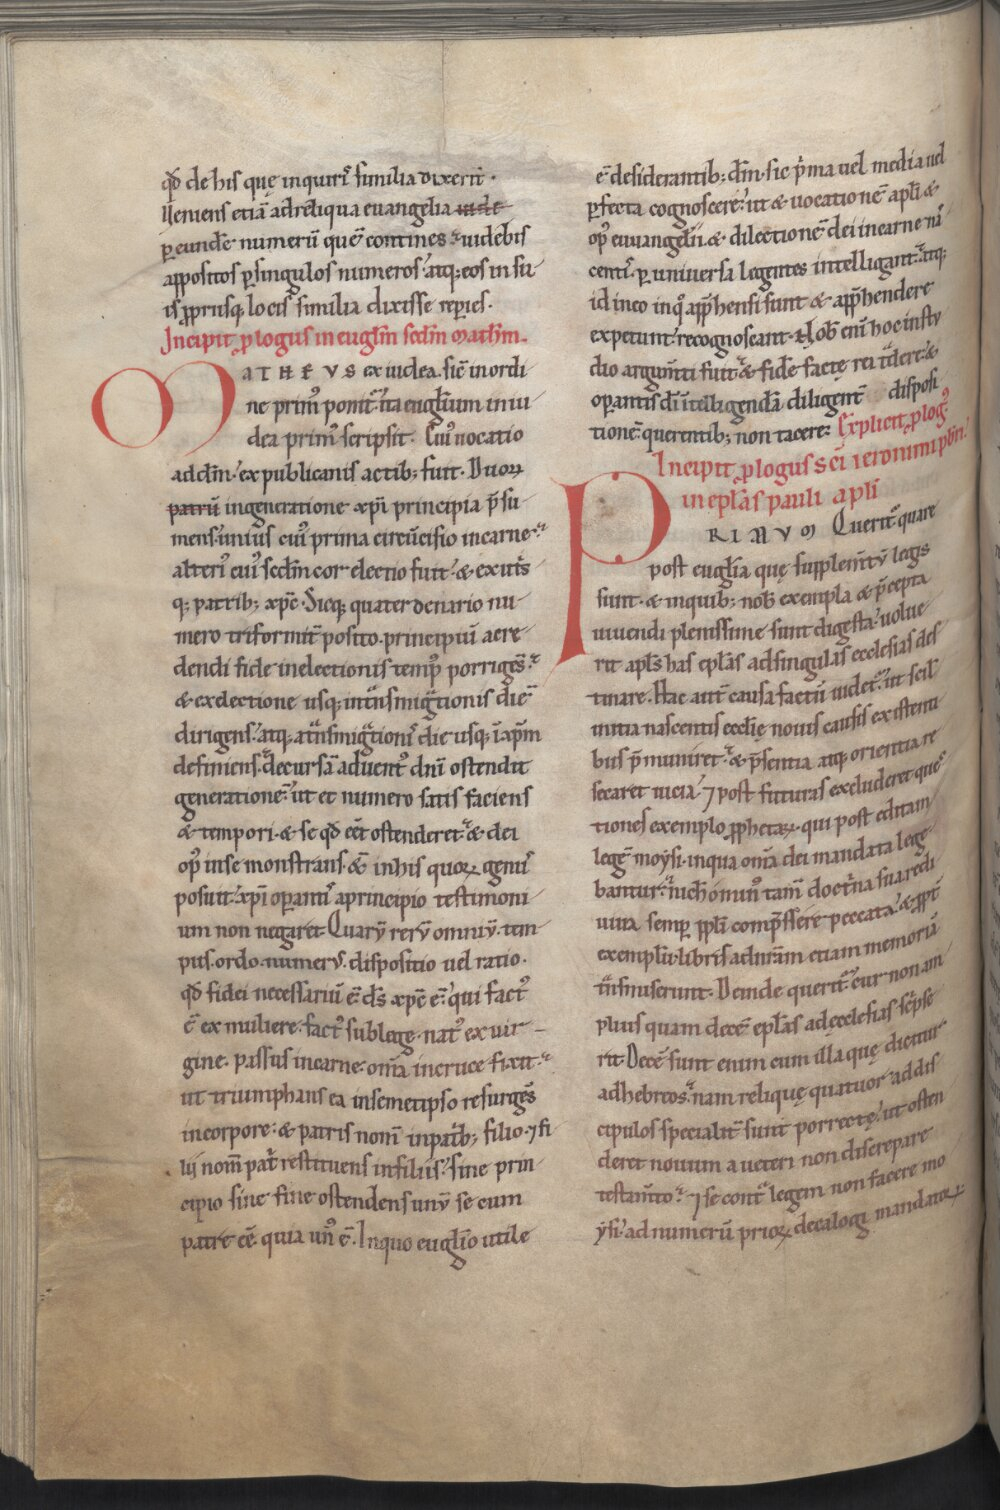 qđ de his quę inquirt᷒ similia dixerīt ·
Veniens etiā ad reliqua evangelia inde
ꝑ eundē numerū quē contines · videbis
appositos ꝑ singulos numeros atq; eos in su
is ꝓpriisq; locis similia dixisse reꝑies.
Incipit ꝓlogus in euglm̄ scdm̄ mathm̄.
MATHEVS ex iudea. sic̄ in ordi
ne prim᷒ ponit᷑. ita euglium in iu
dea prim᷒ scripsit. Cui᷒ uocatio
ad dm̄. ex publicanis actib; fuit. Duoꝝ
patrū in generatione xp̄i principia p̄su
mens. unius cui᷒ prima circūcisio in carne.
alteri᷒ cui᷒ scdm̄ cor electio fuit. & ex utris
q; patrib; xp̄c. Sicq; quater denario nu
mero triformit̄ posito. principiū a cre
dendi fide in electionis temp᷒ porrigēs.
& ex electione usq; in tr̄nsmigr̄tionis diē
dirigens. atq; a tr̄nsmigr̄tionis die usq; ī xp̄m
definiens. decursā aduent᷒ dn̄i ostendit
generationē. ut et numero satis faciens
& tempori. & se qđ eēt ostenderet. & dei
op᷒ in se monstrans. & in his quoꝝ genus
posuit. xp̄i oꝑantis a principio testimoni
um non negaret. Quarū rerū omniū. tem
pus. ordo. numerus. dispositio uel ratio.
qđ fidei necessariū ē. ds̄ xp̄c ē. qui fact᷒
ē ex muliere. fact᷒ sub lege. nat᷒ ex uir
gine. passus in carne. om̄ia in cruce fixit.
ut triumphans ea in semetipso resurgēs
in corpore. & patris nom̄ in patrib; filio. ⁊ fi
lii nom̄ patri restituens in filiis. sine prin
cipio sine fine ostendens unū se cum
patre eē. quia un᷒ ē. In quo euglio utile
ē desiderantib; dm̄. sic p̄ma uel media uel
ꝑfecta cognoscere. ut & uocationē apl̄i &
op᷒ euuangelii. & dilectionē dei in carne nas
centis. ꝑ uniuersa legentes intelligant. atq;
id in eo in q᷒ app̄hensi sunt & app̄hendere
expetunt. recognoscant. Nob̄ enī hoc in stu
dio argum̄ti fuit. & fidē factę rei tradere. &
oꝑantis di̅ intelligendā diligent̄ disposi
tionē querentib; non tacere. Explicit ꝓlog᷒.
Incipit ꝓlogus sc̄i ieronimi pbr̄i
in epl̄as pauli apl̄i
PRIMVM Querit᷑ quare
post euglia quę supplem̄tū legis
sunt. & in quib; nob̄ exempla & p̄cepta
uiuendi plenissime sunt digesta. uolue
rit apl̄s has epl̄as ad singulas ecclesias des
tinare. Hac aut̄ causa factū uidet᷑. ut scil̄
initia nascentis ecclię nouis causis existenti
bus p̄muniret. & p̄sentia atq; orientia re
secaret uicia. ⁊ post futuras excluderet ques
tiones exemplo ꝓphetaꝝ. qui post editam
legē moysi. in qua om̄ia dei mandata lege
bantur. nichominus tam̄ doctrina sua redi
uiua semꝑ ppl̄i comp̄ssere peccata. & ꝓpt̄
exempli. libris ad nr̄am etiam memoriā
tr̄nsmiserunt. Deinde querit᷑. cur non am
plius quam decē epl̄as ad ecclesias scripse
rit. Decē sunt enim cum illa quę dicitur
ad hebreos. nam reliquę quatuor addis
cipulos specialit̄ sunt porrectę. ut osten
deret nouum a ueteri non discrepare
testam̄to. ⁊ se contra legem non facere mo
ysi. ad numerū prioꝝ decalogi mandatoꝝ